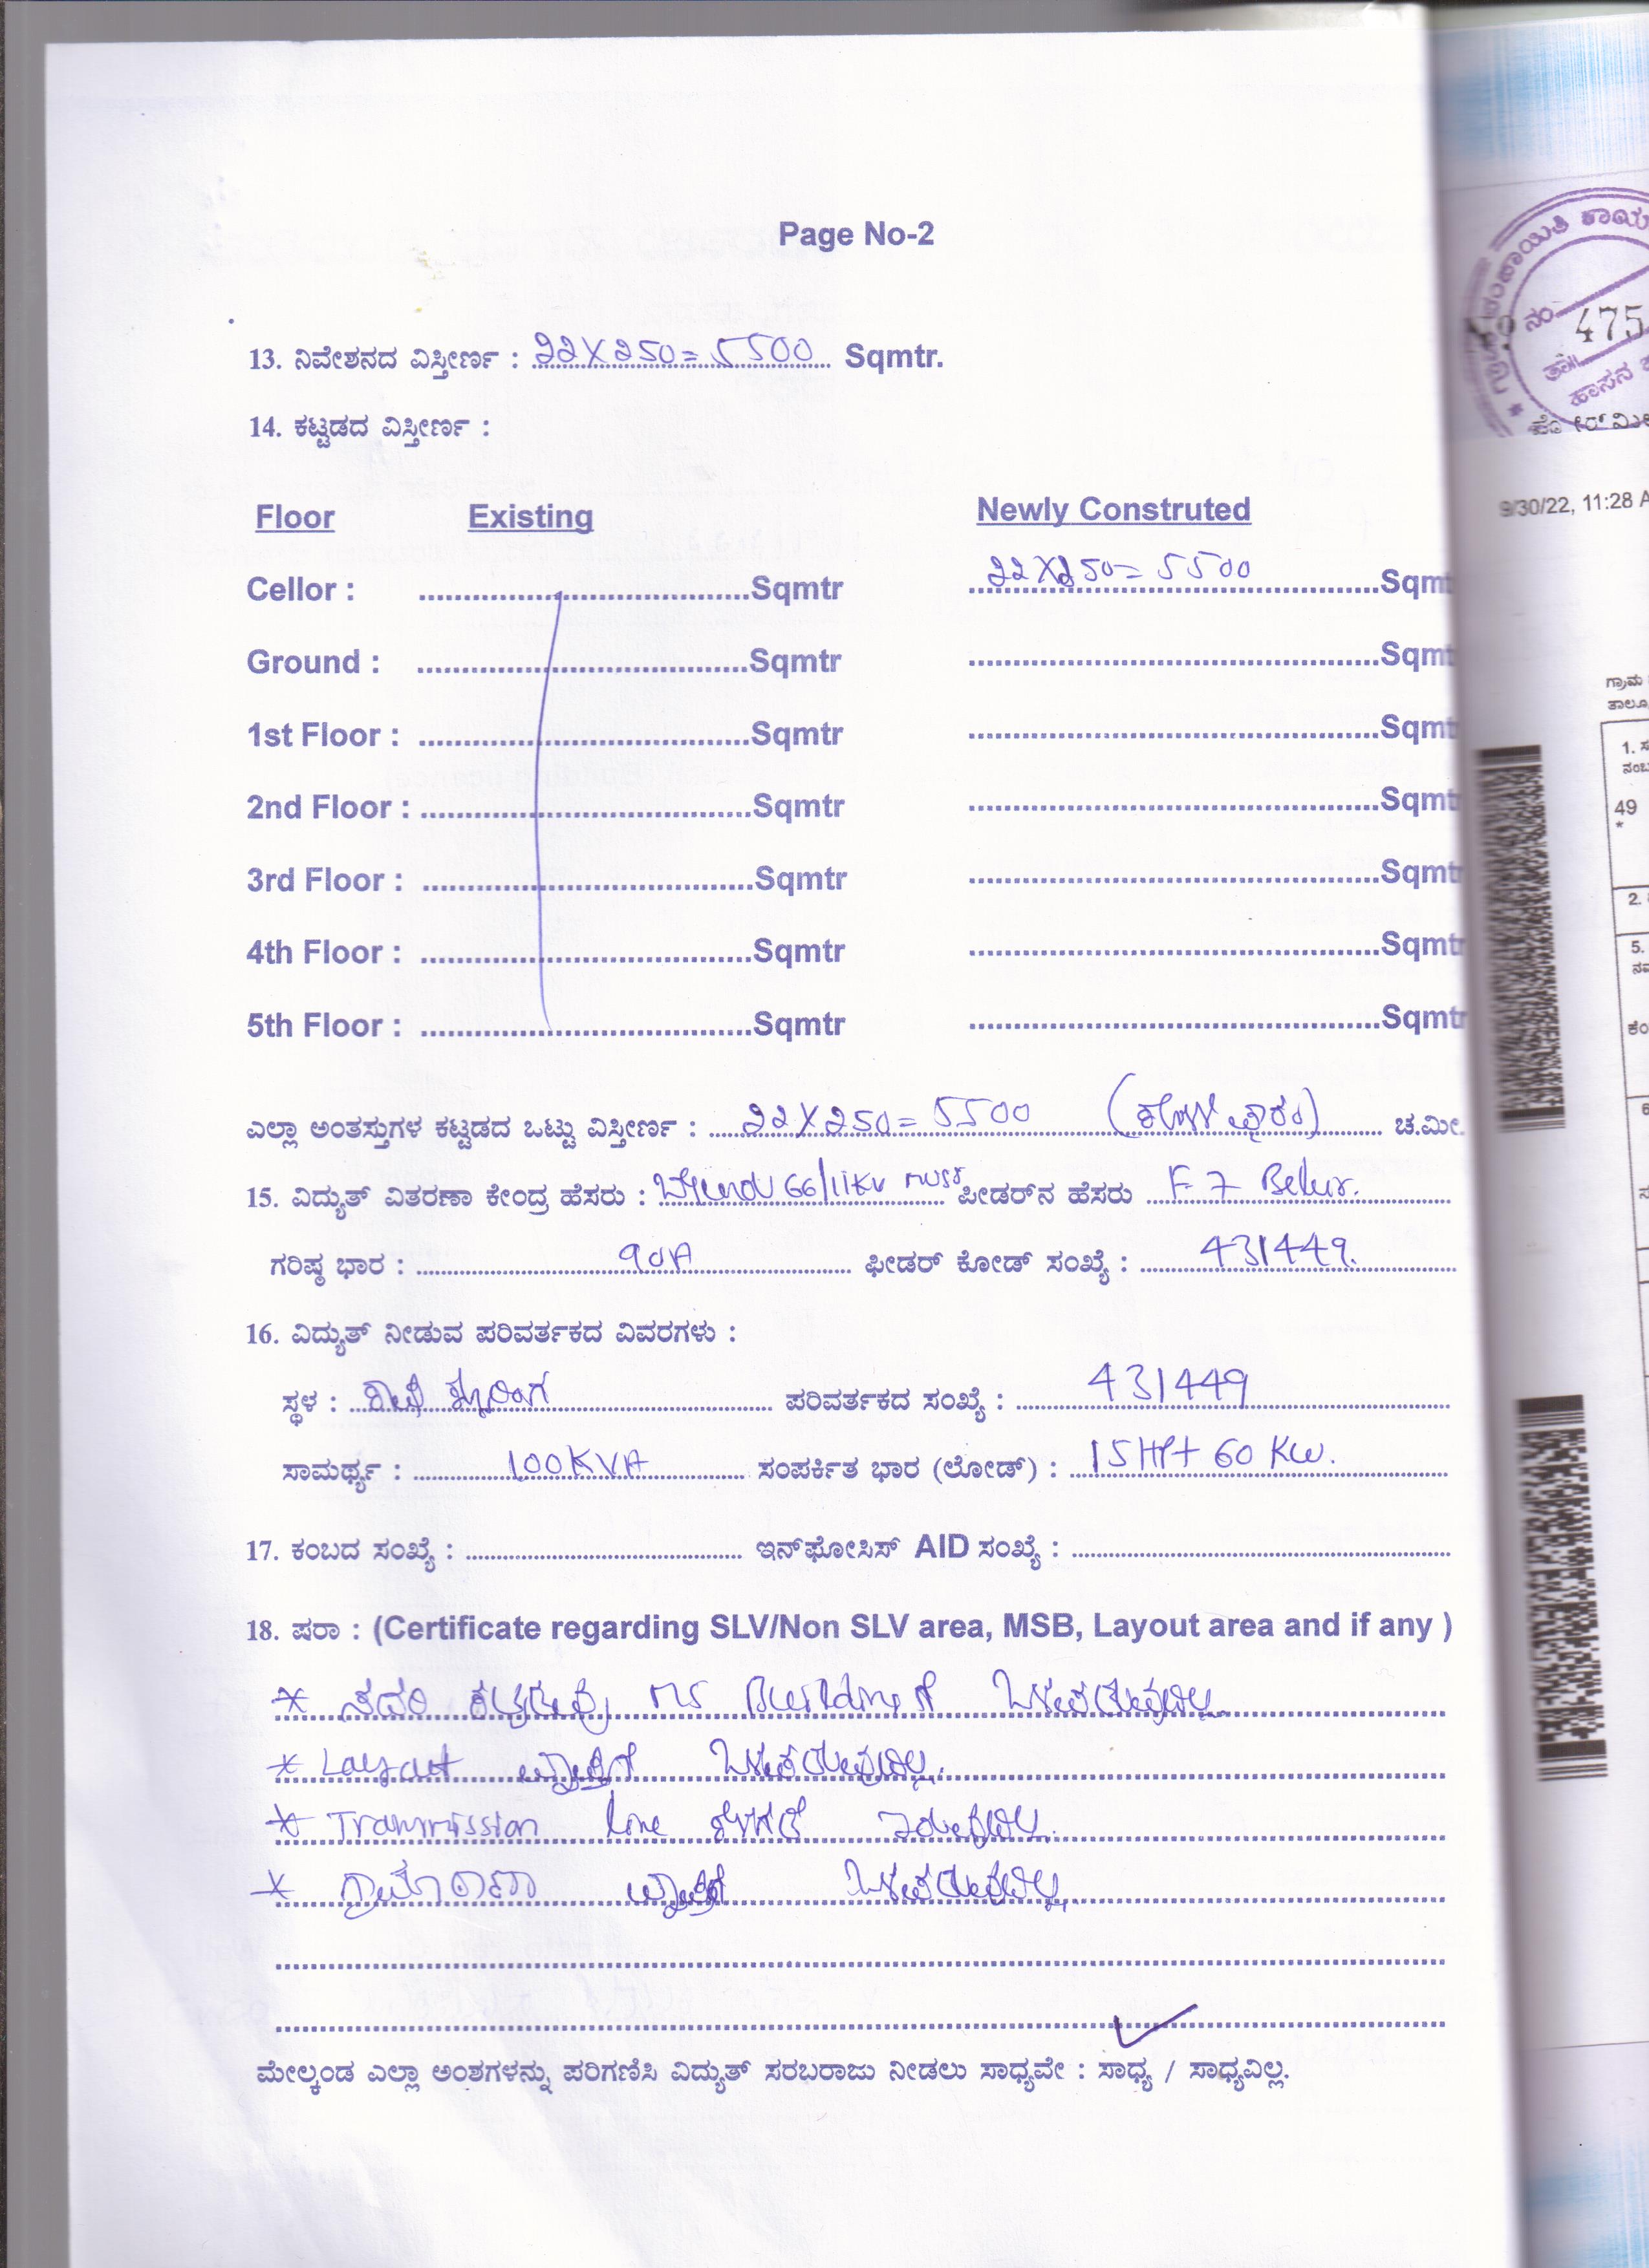 Page No-2
13. ನಿವೇಶನದ ವಿಸ್ತೀರ್ಣ : 22X250=5500 Sqmtr.
14. ಕಟ್ಟಡದ ವಿಸ್ತೀರ್ಣ :
Floor Existing Newly Construted
Cellor : Sqmtr 22X250=5500 Sqmt
Ground : Sqmtr Sqmt
1st Floor : Sqmtr Sqmt
2nd Floor : Sqmtr Sqmt
3rd Floor : Sqmtr Sqmt
4th Floor : Sqmtr Sqmt
5th Floor : Sqmtr Sqmtr
ಎಲ್ಲಾ ಅಂತಸ್ತುಗಳ ಕಟ್ಟಡದ ಒಟ್ಟು ವಿಸ್ತೀರ್ಣ : 22X250=5500 ಚ.ಮೀ.
15. ವಿದ್ಯುತ್ ವಿತರಣಾ ಕೇಂದ್ರ ಹೆಸರು : 66/11KV MUSS ಪೀಡರ್‌ನ ಹೆಸರು F7 Belur.
ಗರಿಷ್ಠ ಭಾರ : 90A ಫೀಡರ್ ಕೋಡ್ ಸಂಖ್ಯೆ : 431449.
16. ವಿದ್ಯುತ್ ನೀಡುವ ಪರಿವರ್ತಕದ ವಿವರಗಳು :
ಸ್ಥಳ : ಪರಿವರ್ತಕದ ಸಂಖ್ಯೆ : 431449
ಸಾಮರ್ಥ್ಯ : 100KVA ಸಂಪರ್ಕಿತ ಭಾರ (ಲೋಡ್) : 15HP+ 60 KW.
17. ಕಂಬದ ಸಂಖ್ಯೆ : ಇನ್‌ಫೋಸಿಸ್ AID ಸಂಖ್ಯೆ :
18. ಷರಾ : (Certificate regarding SLV/Non SLV area, MSB, Layout area and if any )
* ಸದರಿ ಕಟ್ಟಡವು MS ಒಳಪಡುವುದಿಲ್ಲ.
* Layout ವ್ಯಾಪ್ತಿಗೆ ಒಳಪಡುವುದಿಲ್ಲ.
* Transmission line ಕೆಳಗಡೆ ಇರುವುದಿಲ್ಲ.
* ಗ್ರಾಮಠಾಣಾ ವ್ಯಾಪ್ತಿಗೆ ಒಳಪಡುವುದಿಲ್ಲ.
ಮೇಲ್ಕಂಡ ಎಲ್ಲಾ ಅಂಶಗಳನ್ನು ಪರಿಗಣಿಸಿ ವಿದ್ಯುತ್ ಸರಬರಾಜು ನೀಡಲು ಸಾಧ್ಯವೇ : ಸಾಧ್ಯ / ಸಾಧ್ಯವಿಲ್ಲ.
ನಂ 475
9/30/22, 11:28 A
ಗ್ರಾಮ
49
*
2.
5.